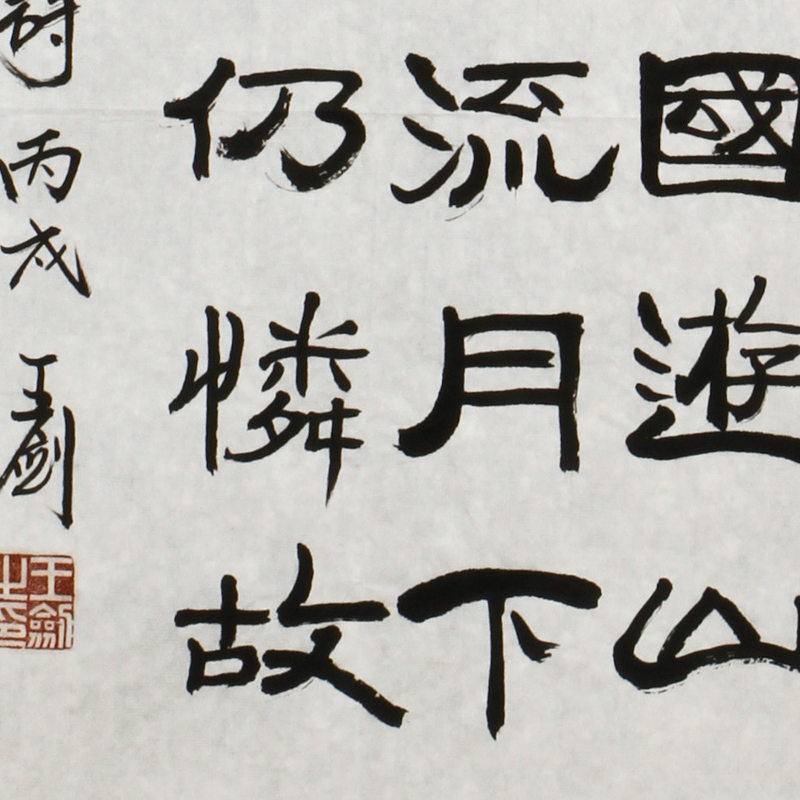 國遊山
流月下
仍憐故
詩丙戌王劍
王劍之印